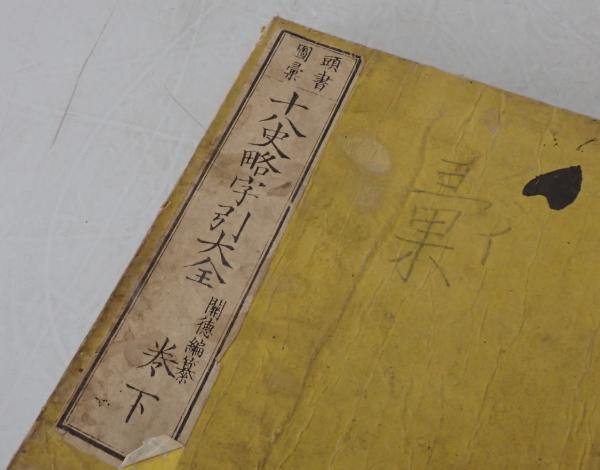 頭書
圖彙
十八史略字引大全
開德編纂
卷下
彙イ